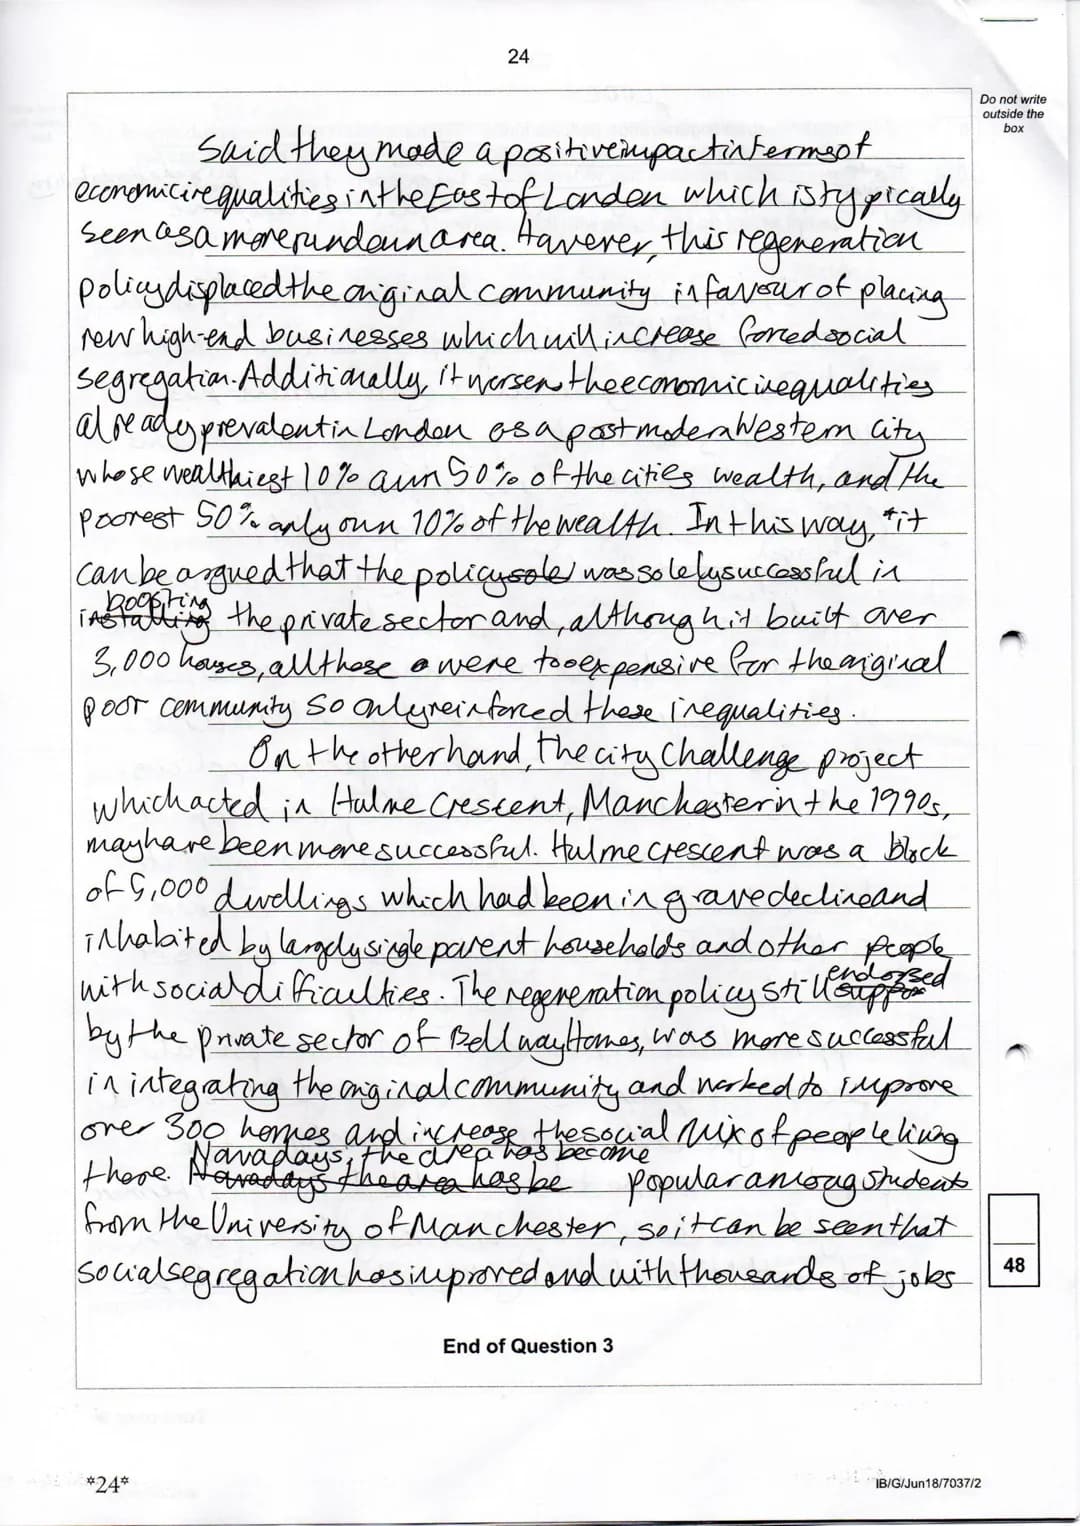 24
Do not write
outside the
box
said they made a positive impact in terms of
economic inequalities in the East of London which is typically
seen as a more rundown area. However, this regeneration
policy displaced the original community in favour of placing
new high-end businesses which will increase forced social
segregation. Additionally, it worsens the economic inequalities
already prevalent in London as a postmodern Western city
whose wealthiest 10% own 50% of the cities wealth, and the
poorest 50% only own 10% of the wealth. In this way, *it
can be argued that the policy sole was solely successful in
boosting
installing the private sector and, although it built over
3,000 houses, all these were too expensive for the original
poor community so only reinforced these inequalities.
On the other hand, the city Challenge project
which acted in Hulme Crescent, Manchester in the 1990s,
may have been more successful. Hulme crescent was a block
of 5,000 dwellings which had been in grave decline and
inhabited by largely single parent households and other people
endorsed
with social difficulties. The regeneration policy still suppor
by the private sector of Bellway Homes, was more successful
in integrating the original community and worked to improve
over 300 homes and increase the social mix of people living
Nowadays, the area has become
there. Nowadays the area has be popular among students
from the University of Manchester, so it can be seen that
social segregation has improved and with thousands of jobs
48
End of Question 3
*24*
IB/G/Jun18/7037/2